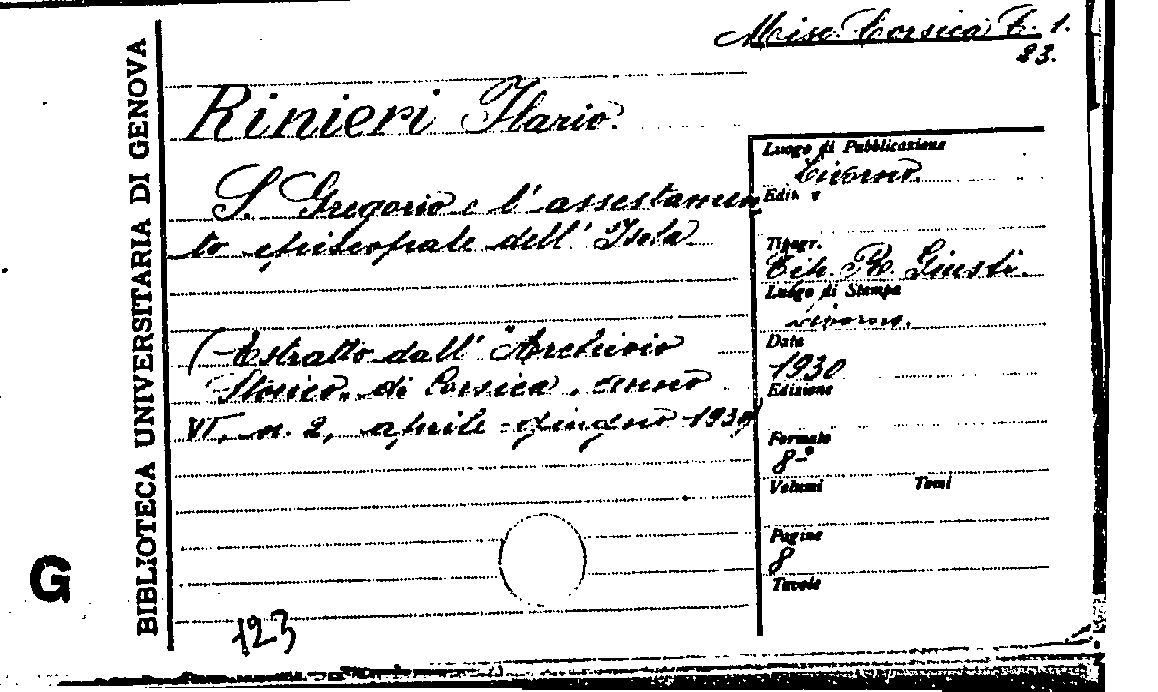 Misc. Corsica C. 1.
23.
BIBLIOTECA UNIVERSITARIA DI GENOVA
Rinieri Ilario.
S. Gregorio e l'assestamen
to episcopale dell'Isola
(Estratto dall'"Archivio
Storico" di Corsica, anno
VI, n. 2, aprile-giugno 1930)
Luogo di Pubblicazione
Livorno.
Edit.
Tipogr.
Tip. R. Giusti.
Luogo di Stampa
Livorno.
Data
1930
Edizione
Formato
8°
Volumi Tomi
Pagine
8
Tavole
G
123